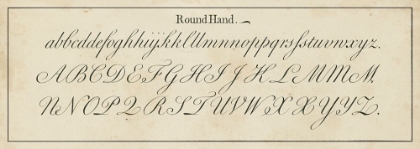 Round Hand.
abbcddefoghhijÿkklllmnnoppqrsſstuvwxyz.
ABCDEFGHIJKLMMM.
NNOPQRSTUVWXXYYZ.